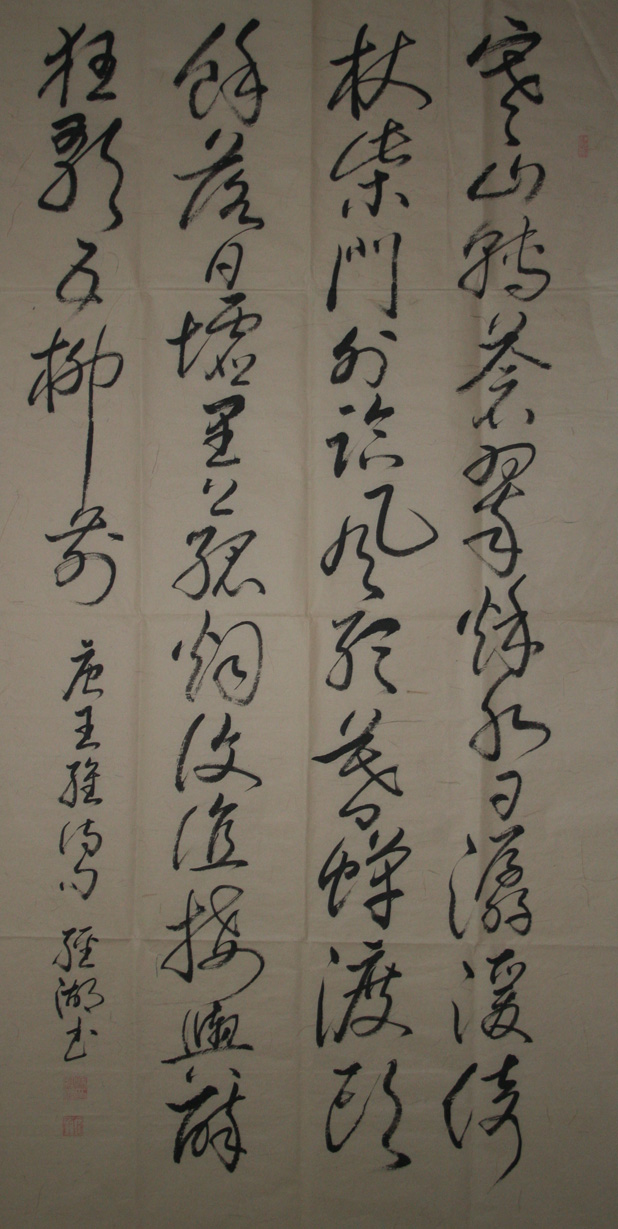 寒山轉蒼翠秋水日潺湲倚
杖柴門外臨風聽暮蟬渡頭
餘落日墟里上孤烟復值接輿醉
狂歌五柳前 唐王維詩句 經湖书